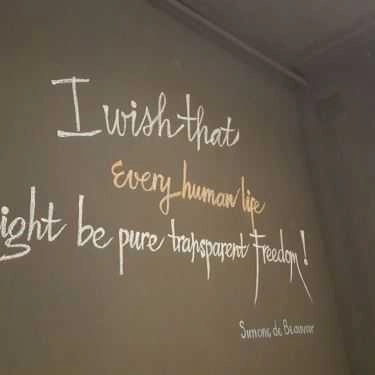 I wish that
Every human life
ight be pure transparent Freedom!
Simone de Beauvoir